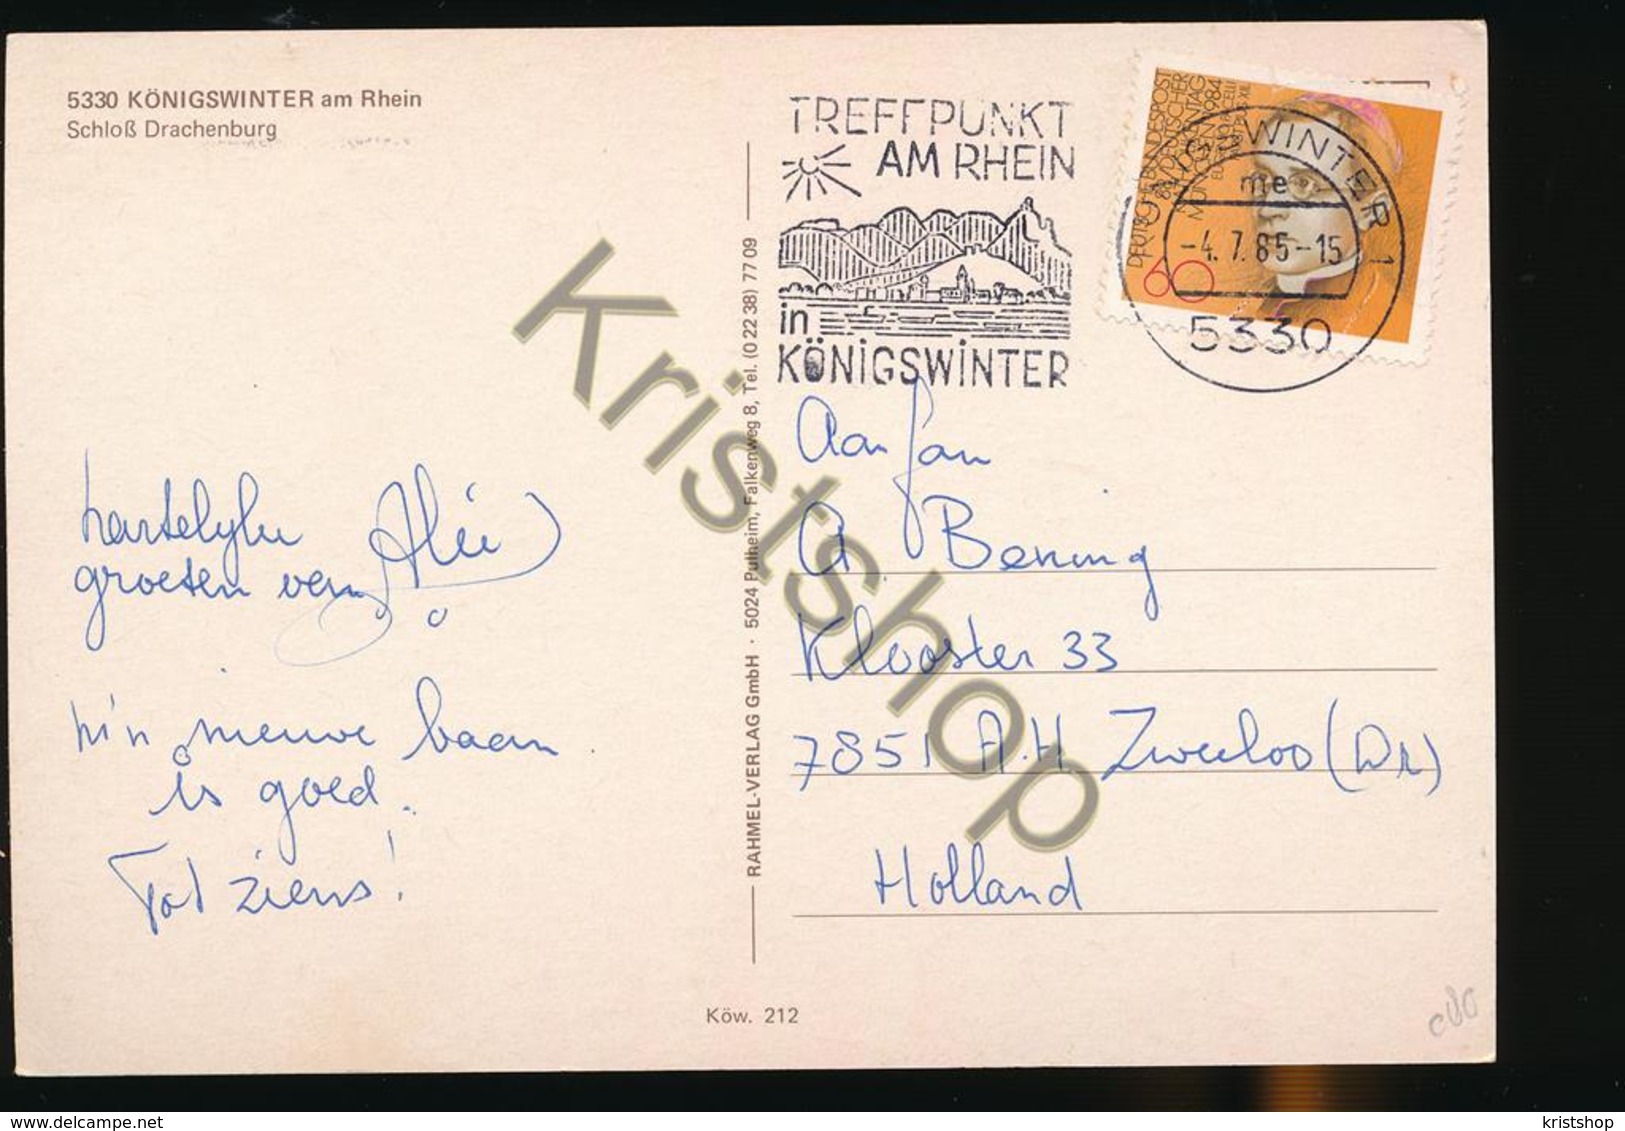 5330 KÖNIGSWINTER am Rhein
Schloß Drachenburg
hartelyke
groeten van
mijn nieuwe baan
is goed.
Tot ziens!
RAHMEL-VERLAG GmbH · 5024 Pulheim, Falkenweg 8, Tel. (0 22 38) 77 09
Köw. 212
TREFFPUNKT
AM RHEIN
in
KÖNIGSWINTER
DEUTSCHE BUNDESPOST
60
KÖNIGSWINTER 1
me
-4.7.85-15
5330
Aan fam
A. Bening
Klooster 33
7851 A.H Zweeloo (Dr)
Holland
Kristshop
kristshop